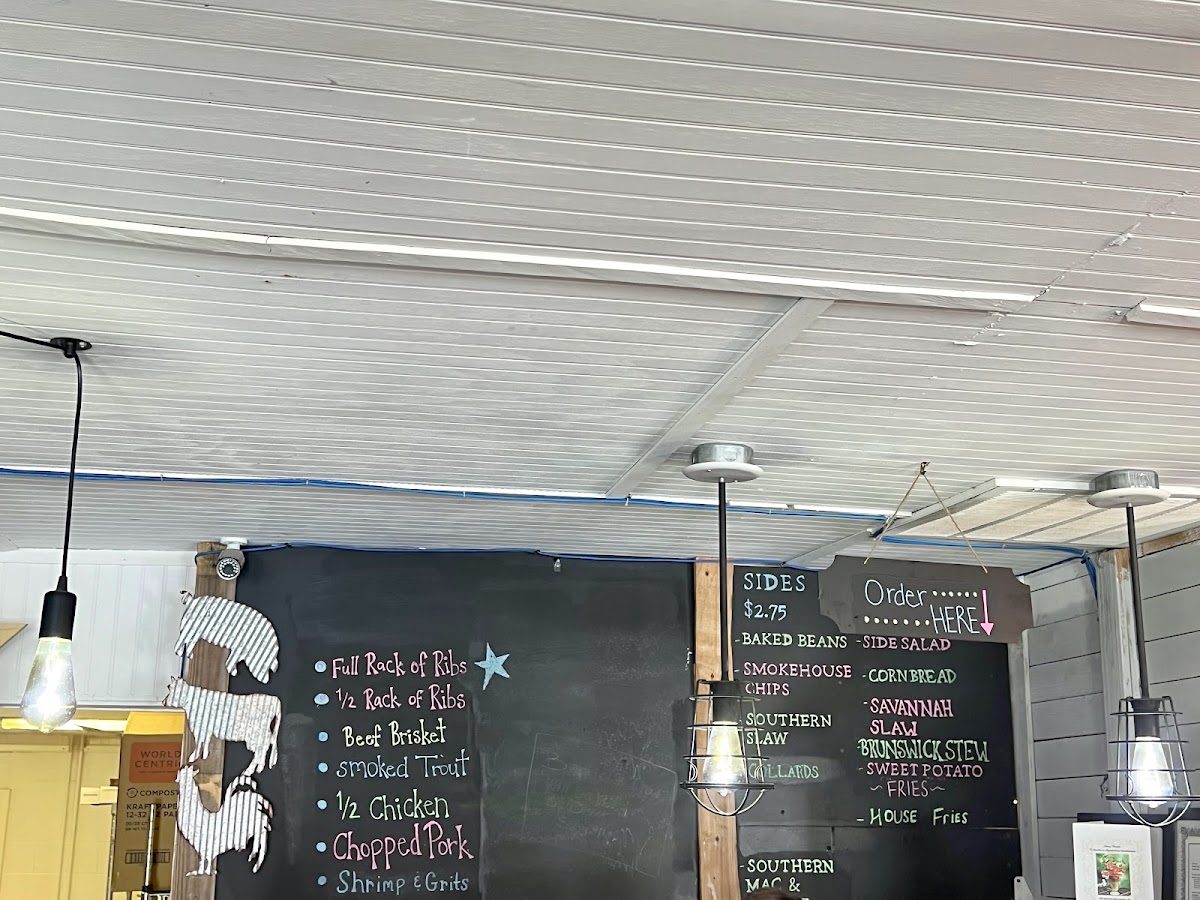 Full Rack of Ribs
1/2 Rack of Ribs
Beef Brisket
Smoked Trout
1/2 Chicken
Chopped Pork
Shrimp & Grits
SIDES
$2.75
- BAKED BEANS
- SMOKEHOUSE
CHIPS
- SOUTHERN
SLAW
COLLARDS
- SOUTHERN
MAC &
Order
HERE
- SIDE SALAD
- CORNBREAD
- SAVANNAH
SLAW
BRUNSWICK STEW
- SWEET POTATO
~FRIES~
- HOUSE FRIES
WORLD
CENTRI
COMPOST
KRAF
12-32